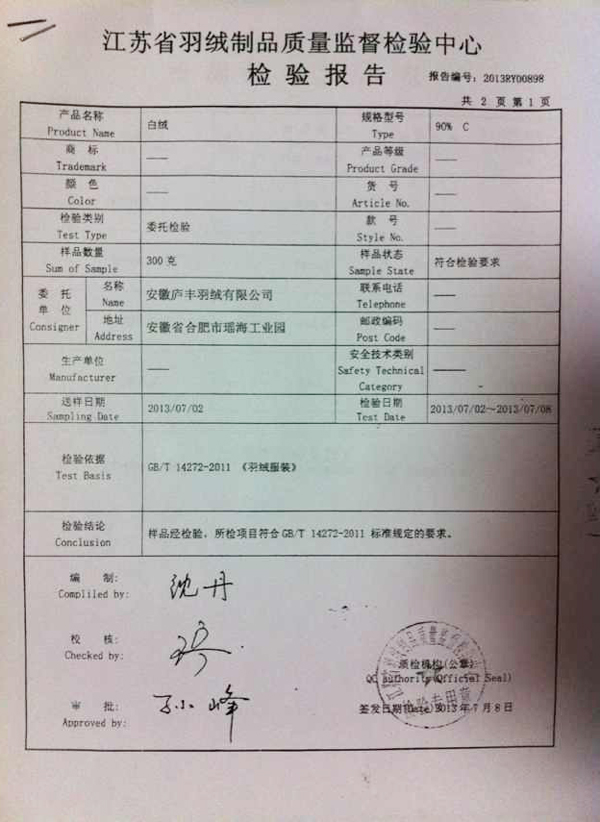 江苏省羽绒制品质量监督检验中心
检验报告
报告编号: 2013RY00898
共 2 页 第 1 页
产品名称
Product Name
白绒
规格型号
Type
90% C
商 标
Trademark
——
产品等级
Product Grade
——
颜 色
Color
——
货 号
Article No.
——
检验类别
Test Type
委托检验
款 号
Style No.
——
样品数量
Sum of Sample
300 克
样品状态
Sample State
符合检验要求
委 托
单 位
Consigner
名称
Name
安徽庐丰羽绒有限公司
联系电话
Telephone
——
地址
Address
安徽省合肥市瑶海工业园
邮政编码
Post Code
——
生产单位
Manufacturer
——
安全技术类别
Safety Technical
Category
———
送样日期
Sampling Date
2013/07/02
检验日期
Test Date
2013/07/02~2013/07/08
检验依据
Test Basis
GB/T 14272-2011 《羽绒服装》
检验结论
Conclusion
样品经检验，所检项目符合GB/T 14272-2011 标准规定的要求。
编 制:
Compliled by:
沈丹
校 核:
Checked by:
审 批:
Approved by:
孙小峰
质检机构(公章)
QC authority(Official Seal)
签发日期(Date)2013年7月8日
检验专用章